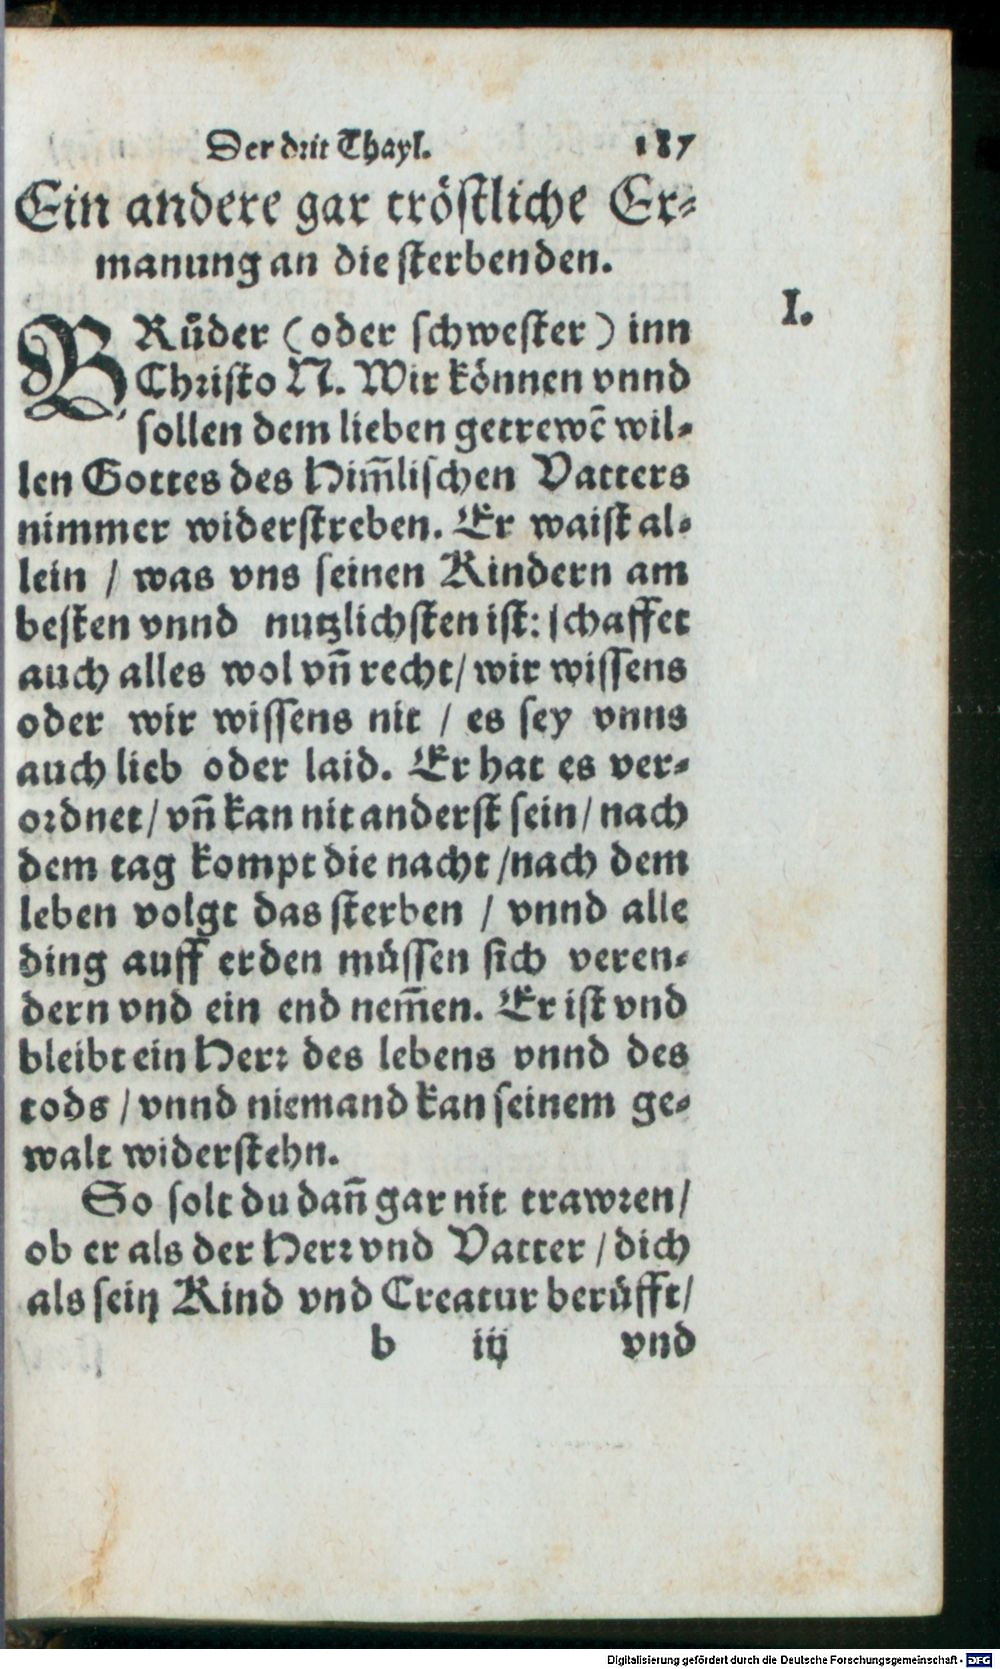 Der drit Thayl. 187
Ein andere gar tröstliche Er-
manung an die sterbenden.
I.
BRůder (oder schwester) inn
Christo N. Wir können vnnd
sollen dem lieben getrewē wil-
len Gottes des Him̄lischen Vatters
nimmer widerstreben. Er waist al-
lein / was vns seinen Kindern am
besten vnnd nutzlichsten ist: schaffet
auch alles wol vn̄ recht / wir wissens
oder wir wissens nit / es sey vnns
auch lieb oder laid. Er hat es ver-
ordnet / vn̄ kan nit anderst sein / nach
dem tag kompt die nacht / nach dem
leben volgt das sterben / vnnd alle
ding auff erden müssen sich veren-
dern vnd ein end nem̄en. Er ist vnd
bleibt ein Herr des lebens vnnd des
tods / vnnd niemand kan seinem ge-
walt widerstehn.
So solt du dan̄ gar nit trawren /
ob er als der Herr vnd Vatter / dich
als sein Kind vnd Creatur berüfft /
b iij vnd
Digitalisierung gefördert durch die Deutsche Forschungsgemeinschaft - DFG